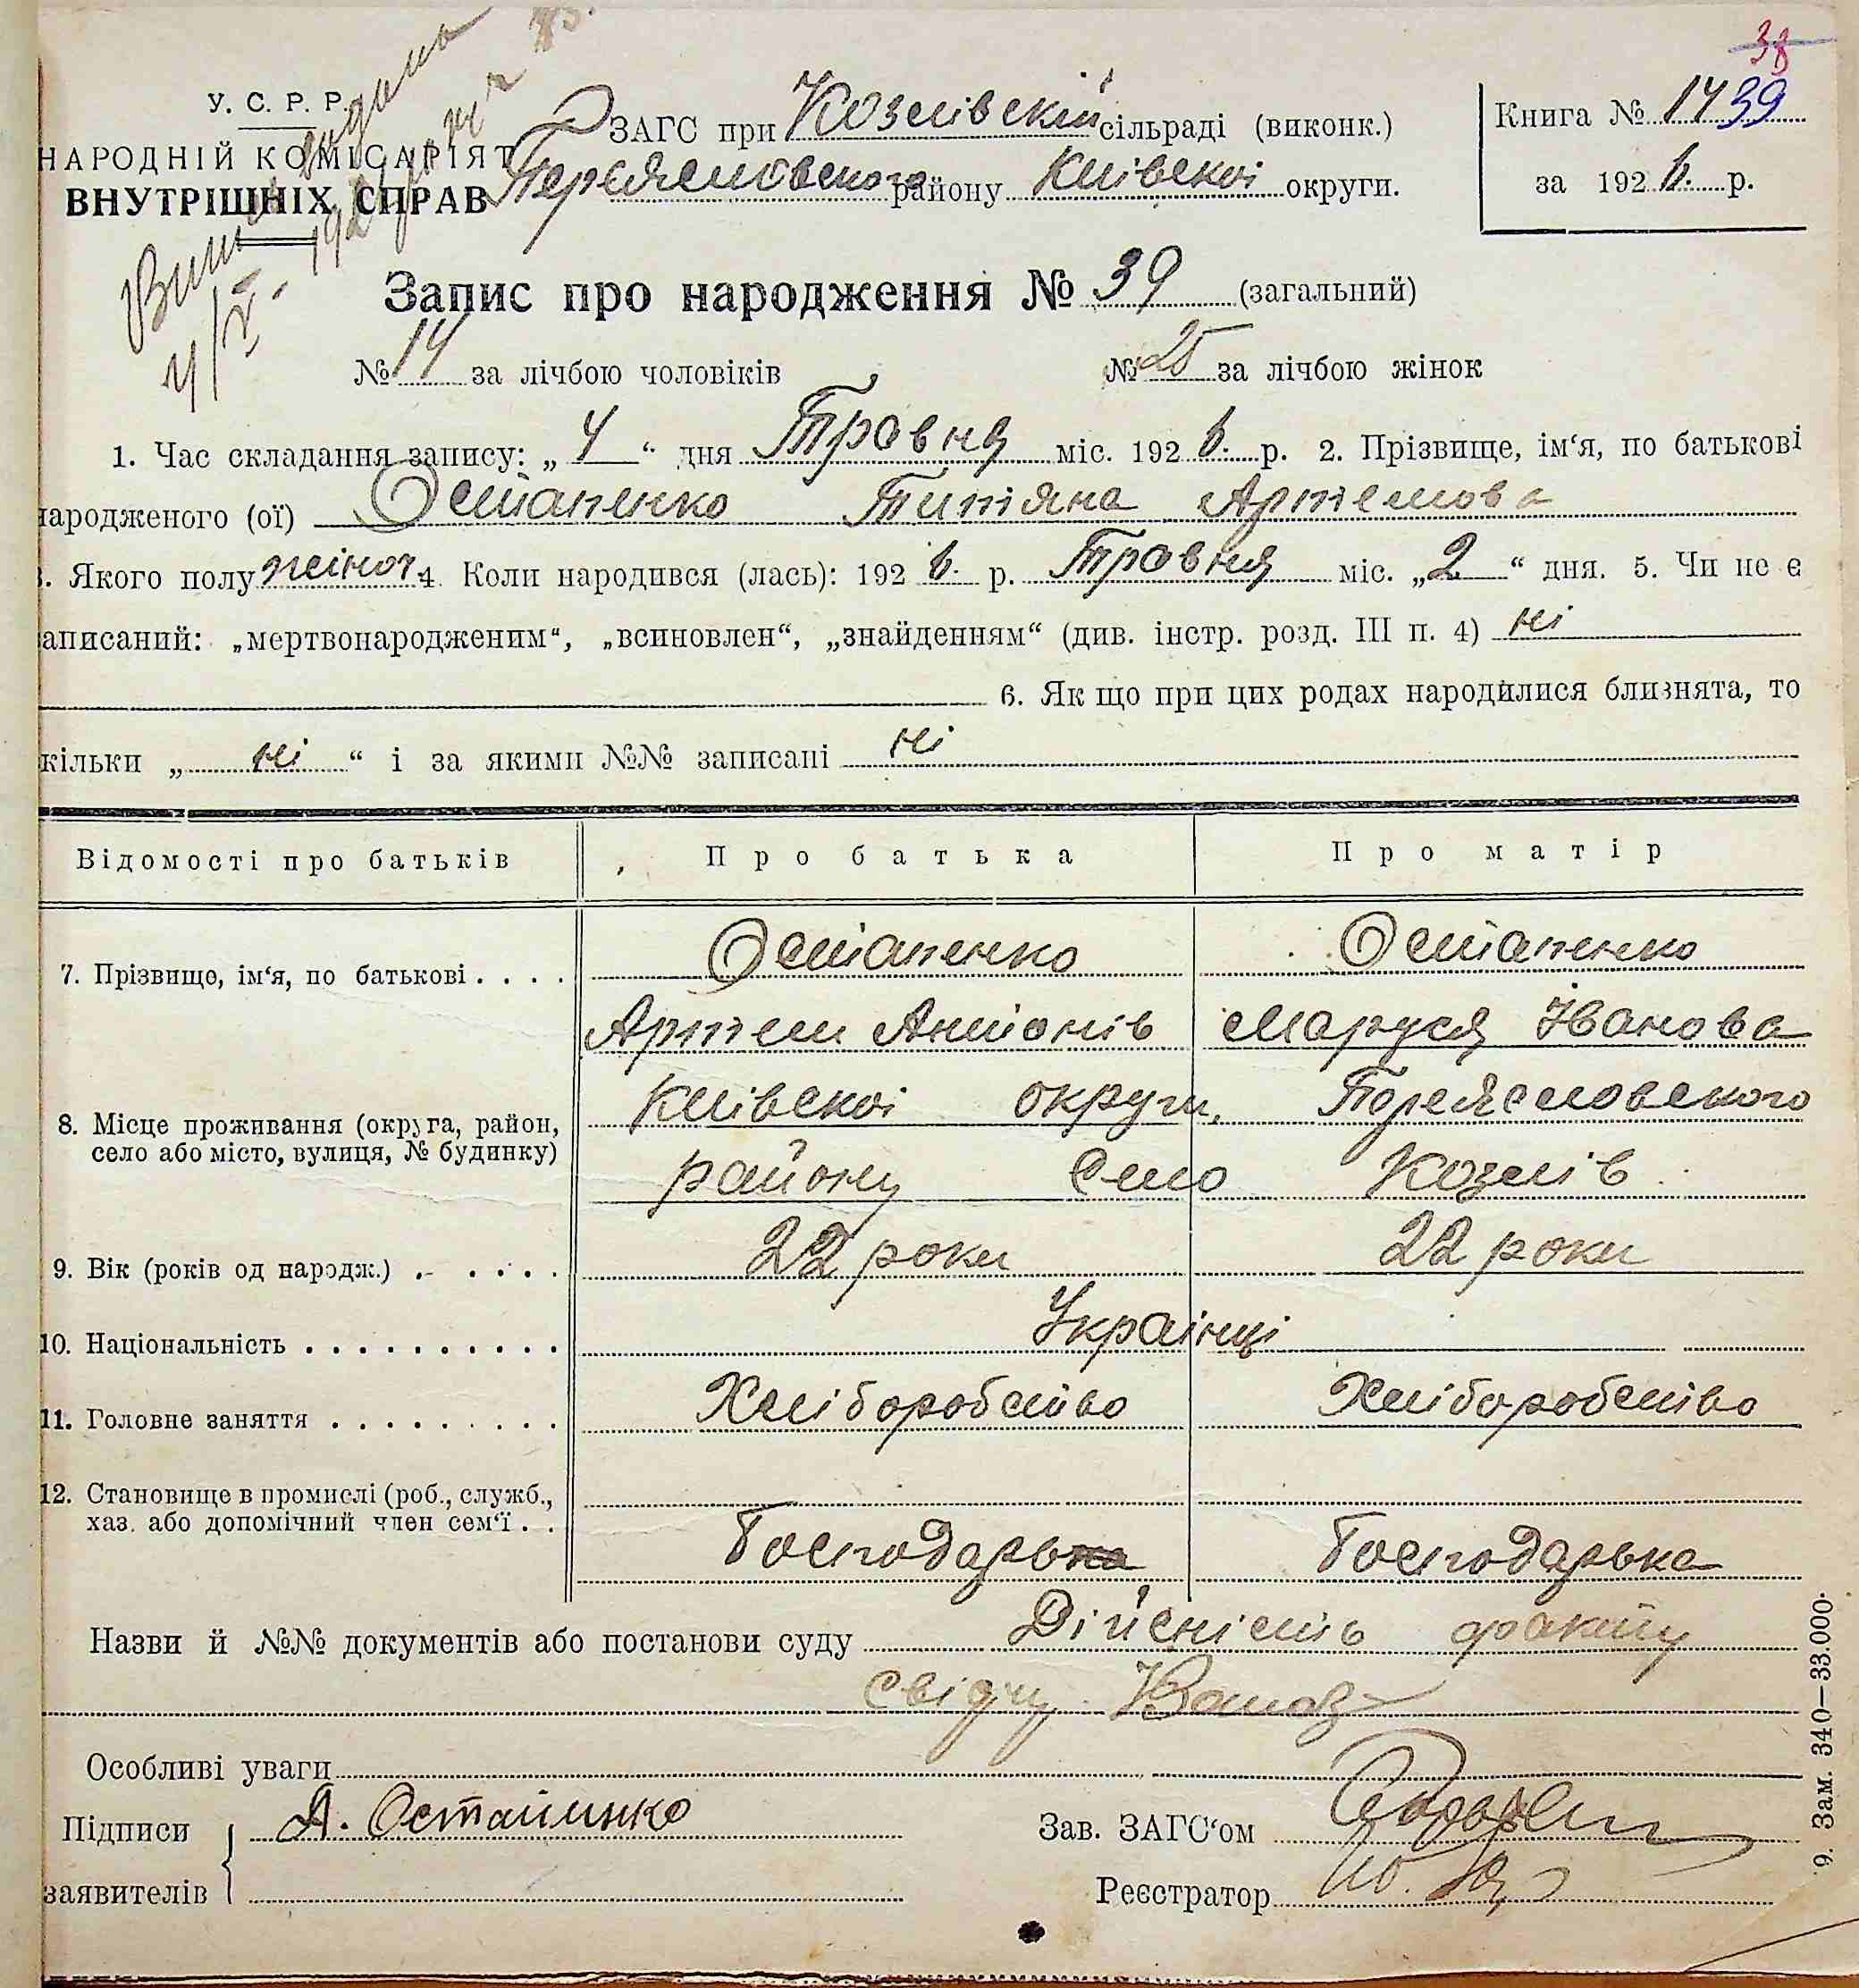 38
У. С. Р. Р.
НАРОДНІЙ КОМІСАРІЯТ
ВНУТРІШНІХ СПРАВ
ЗАГС при Козлівській сільраді (виконк.)
Переяславського району Київскої округи.
Книга № 14 39
за 1926. р.
Запис про народження № 39 (загальний)
№ 14 за лічбою чоловіків № 25 за лічбою жінок
1. Час складання запису: „ 4 “ дня Травня міс. 1926. р. 2. Прізвище, ім‘я, по батькові
народженого (ої) Остапенко Титяна Артемова
3. Якого полу жіноч. 4. Коли народився (лась): 1926. р. Травня міс. „ 2 “ дня. 5. Чи не є
записаний: „мертвонародженим“, „всиновлен“, „знайденням“ (див. інстр. розд. III п. 4) ні
6. Як що при цих родах народилися близнята, то
кільки „ ні “ і за якими №№ записані ні
Відомості про батьків Про батька Про матір
7. Прізвище, ім‘я, по батькові . . . . Остапенко Остапенко
Артем Антонів Маруся Іванова
8. Місце проживання (округа, район, село або місто, вулиця, № будинку) Київскої округи, Переясловського
району Село Козлів
9. Вік (років од народж.) . . . . . 22 роки 22 роки
10. Національність . . . . . . . . . . Українці
11. Головне заняття . . . . . . . . . Хліборобство Хліборобство
12. Становище в промислі (роб., служб.,
хаз. або допомічний член сем‘ї . . Господарька Господарька
Назви й №№ документів або постанови суду Дійсність факту
свідчу
Особливі уваги
Підписи А. Остапинко Зав. ЗАГС‘ом
заявителів Реєстратор
9. Зам. 340—33.000.